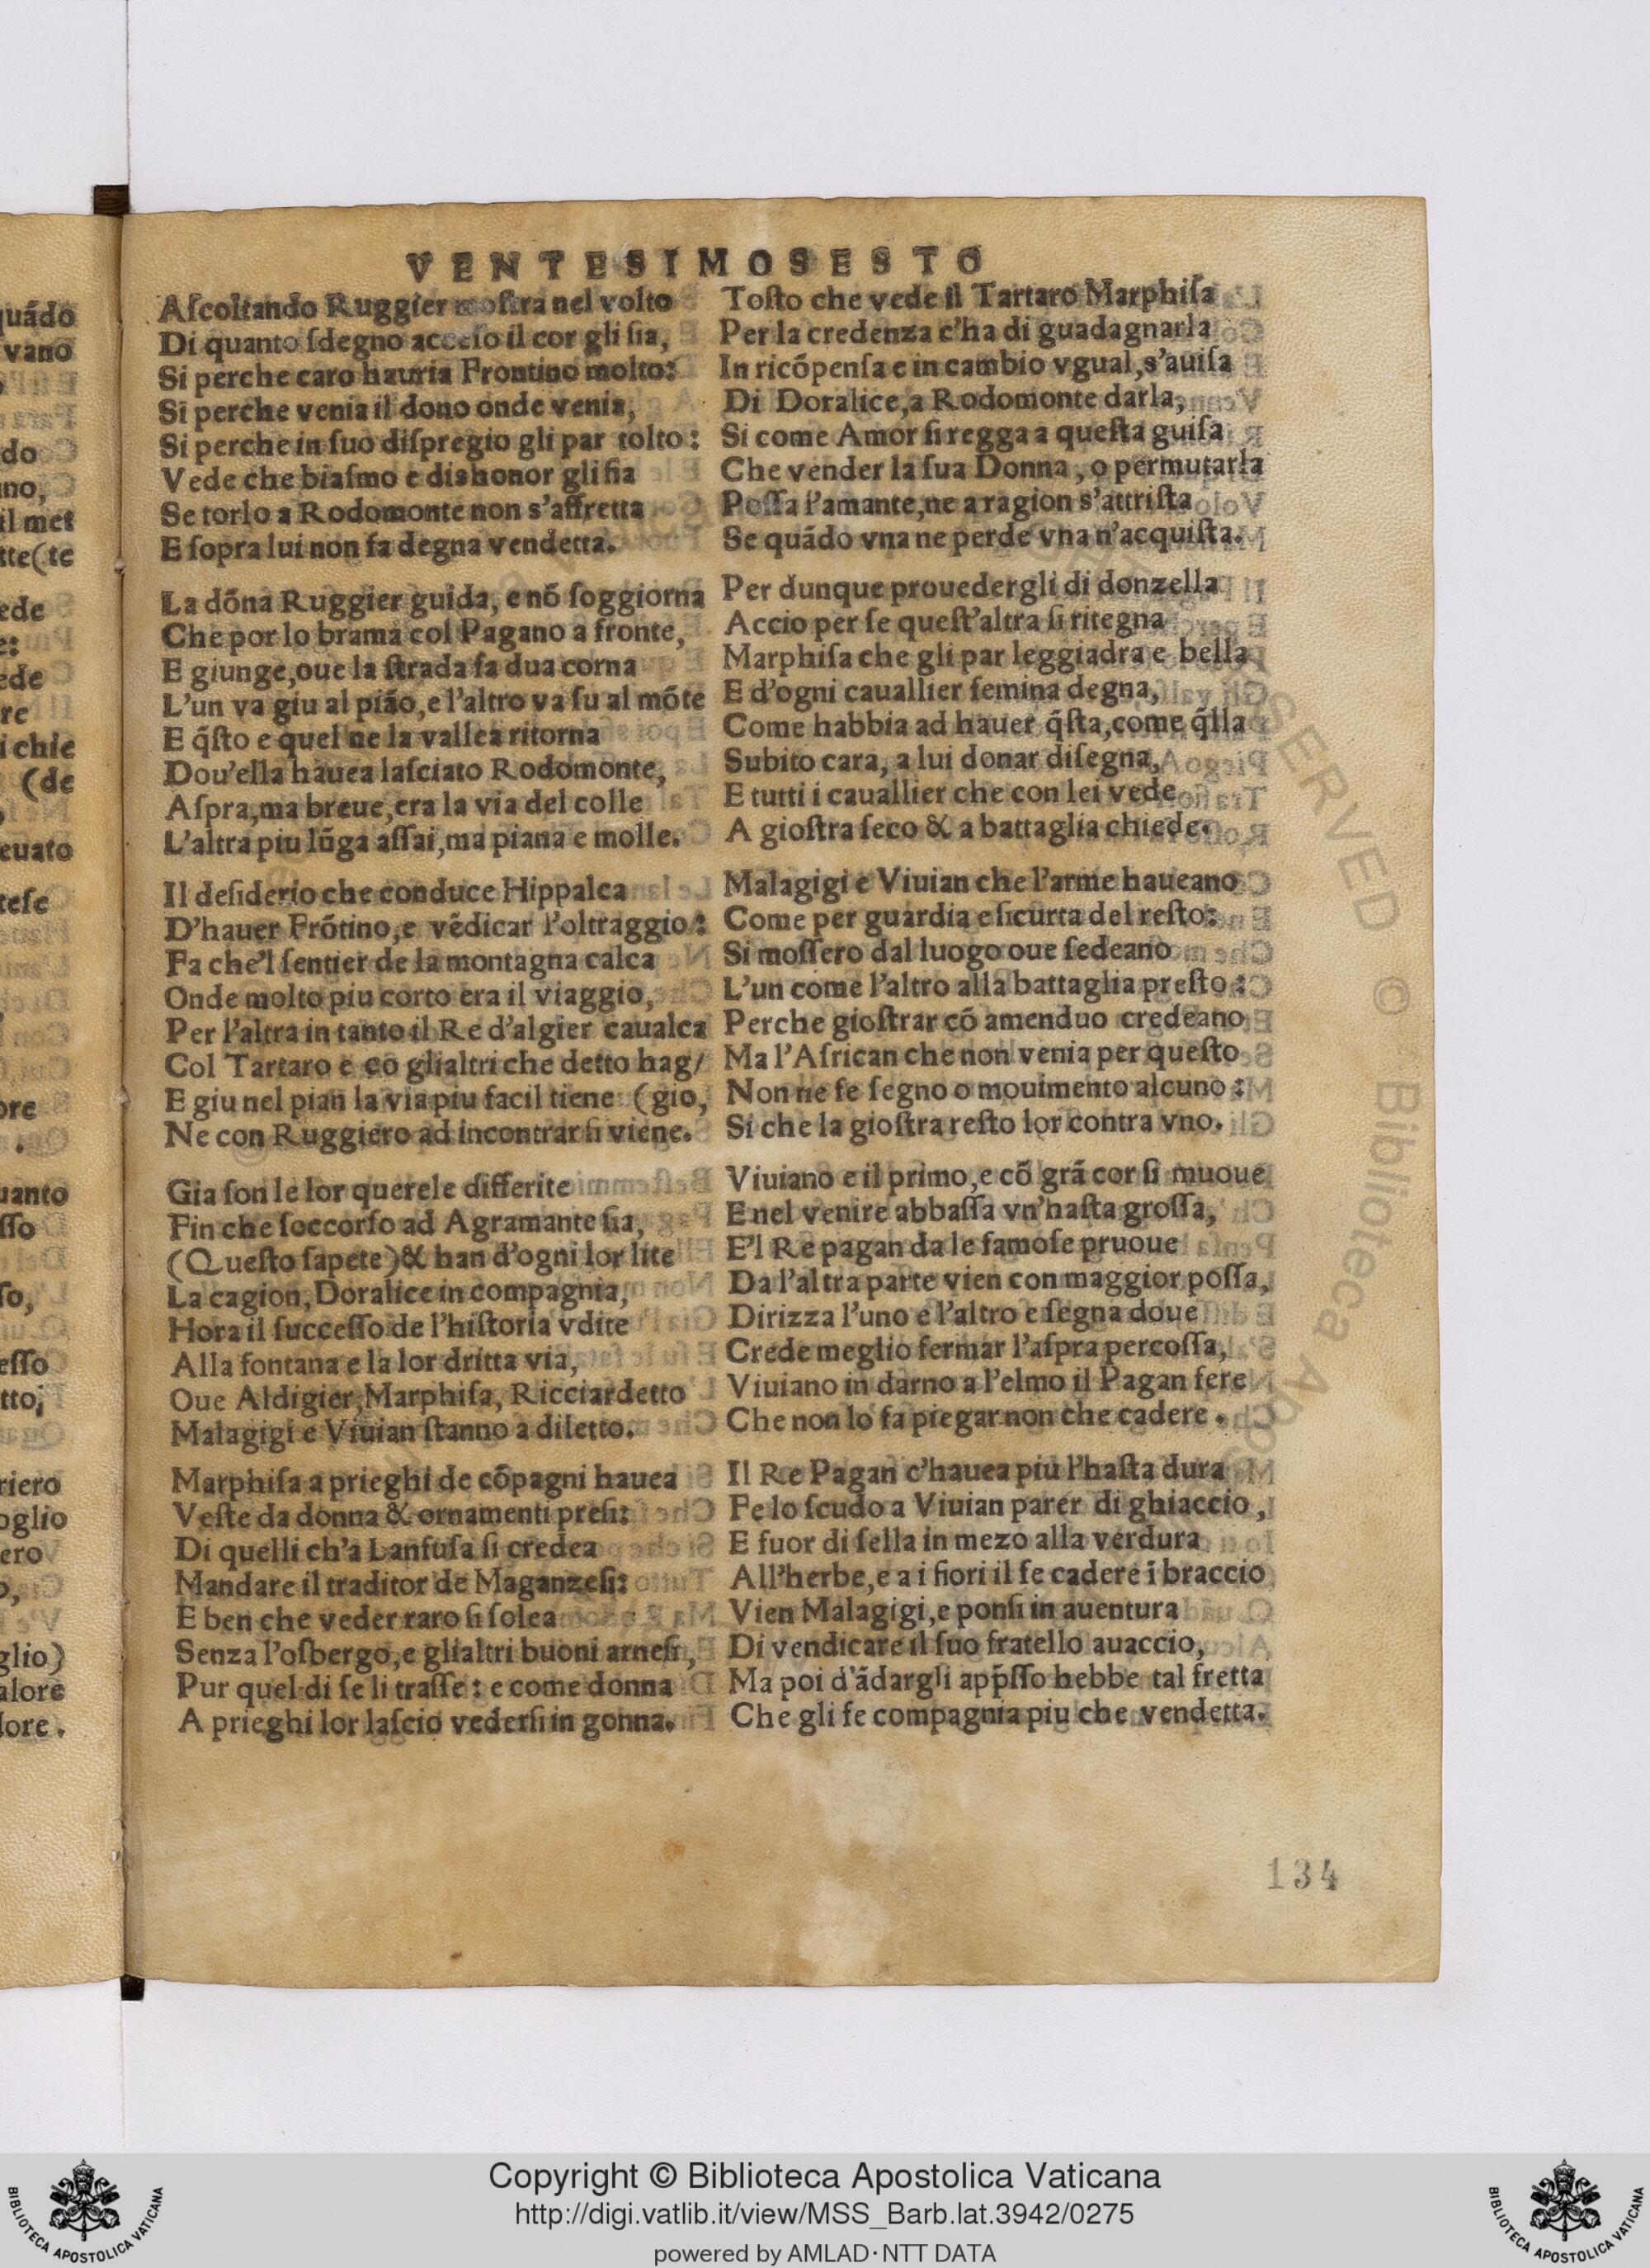 VENTESIMOSESTO
Aſcoltando Ruggier moſtra nel volto
Di quanto ſdegno acceſo il cor gli ſia,
Si perche caro hauria Frontino molto:
Si perche venia il dono onde venia,
Si perche in ſuo diſpregio gli par tolto:
Vede che biaſmo e dishonor gli fia
Se torlo a Rodomonte non s'affretta
E ſopra lui non fa degna vendetta.
La dōna Ruggier guida, e nō ſoggiorna
Che por lo brama col Pagano a fronte,
E giunge, oue la ſtrada fa dua corna
L'un va giu al piāo, e l'altro va ſu al mōte
E q̄ſto e quel ne la vallea ritorna
Dou'ella hauea laſciato Rodomonte,
Aſpra, ma breue, era la via del colle
L'altra piu lūga aſſai, ma piana e molle.
Il deſiderio che conduce Hippalca
D'hauer Frōtino, e vēdicar l'oltraggio:
Fa che'l ſentier de la montagna calca
Onde molto piu corto era il viaggio,
Per l'altra in tanto il Re d'algier caualca
Col Tartaro e cō glialtri che detto hag/
E giu nel pian la via piu facil tiene (gio,
Ne con Ruggiero ad incontrar ſi viene.
Gia ſon le lor querele differite
Fin che ſoccorſo ad Agramante ſia,
(Queſto ſapete) & han d'ogni lor lite
La cagion, Doralice in compagnia,
Hora il ſucceſſo de l'hiſtoria vdite
Alla fontana e la lor dritta via,
Oue Aldigier, Marphiſa, Ricciardetto
Malagigi e Viuian ſtanno a diletto.
Marphiſa a prieghi de cōpagni hauea
Veſte da donna & ornamenti preſi:
Di quelli ch'a Lanfuſa ſi credea
Mandare il traditor de Maganzeſi:
E ben che veder raro ſi ſolea
Senza l'oſbergo, e glialtri buoni arneſi,
Pur quel di ſe li traſſe: e come donna
A prieghi lor laſcio vederſi in gonna.
Toſto che vede il Tartaro Marphiſa
Per la credenza c'ha di guadagnarla
In ricōpenſa e in cambio vgual, s'auiſa
Di Doralice, a Rodomonte darla,
Si come Amor ſi regga a queſta guiſa
Che vender la ſua Donna, o permutarla
Poſſa l'amante, ne a ragion s'attriſta
Se quādo vna ne perde vna n'acquiſta.
Per dunque prouedergli di donzella
Accio per ſe queſt'altra ſi ritegna
Marphiſa che gli par leggiadra e bella
E d'ogni cauallier femina degna,
Come habbia ad hauer q̄ſta, come q̄lla
Subito cara, a lui donar diſegna,
E tutti i cauallier che con lei vede
A gioſtra ſeco & a battaglia chiede.
Malagigi e Viuian che l'arme haueano
Come per guardia e ſicurta del reſto:
Si moſſero dal luogo oue ſedeano
L'un come l'altro alla battaglia preſto:
Perche gioſtrar cō amenduo credeano
Ma l'African che non venia per queſto
Non ne fe ſegno o mouimento alcuno:
Si che la gioſtra reſto lor contra vno.
Viuiano e il primo, e cō grā cor ſi muoue
E nel venire abbaſſa vn'haſta groſſa,
E'l Re pagan da le famoſe pruoue
Da l'altra parte vien con maggior poſſa,
Dirizza l'uno e l'altro e ſegna doue
Crede meglio fermar l'aſpra percoſſa,
Viuiano in darno a l'elmo il Pagan fere
Che non lo fa piegar non che cadere.
Il Re Pagan c'hauea piu l'haſta dura
Fe lo ſcudo a Viuian parer di ghiaccio,
E fuor di ſella in mezo alla verdura
All'herbe, e a i fiori il fe cadere ī braccio
Vien Malagigi, e ponſi in auentura
Di vendicare il ſuo fratello auaccio,
Ma poi d'ādargli app̄ſſo hebbe tal fretta
Che gli fe compagnia piu che vendetta.
134
Copyright © Biblioteca Apostolica Vaticana
http://digi.vatlib.it/view/MSS_Barb.lat.3942/0275
powered by AMLAD·NTT DATA
BIBLIOTECA APOSTOLICA VATICANA
BIBLIOTECA APOSTOLICA VATICANA